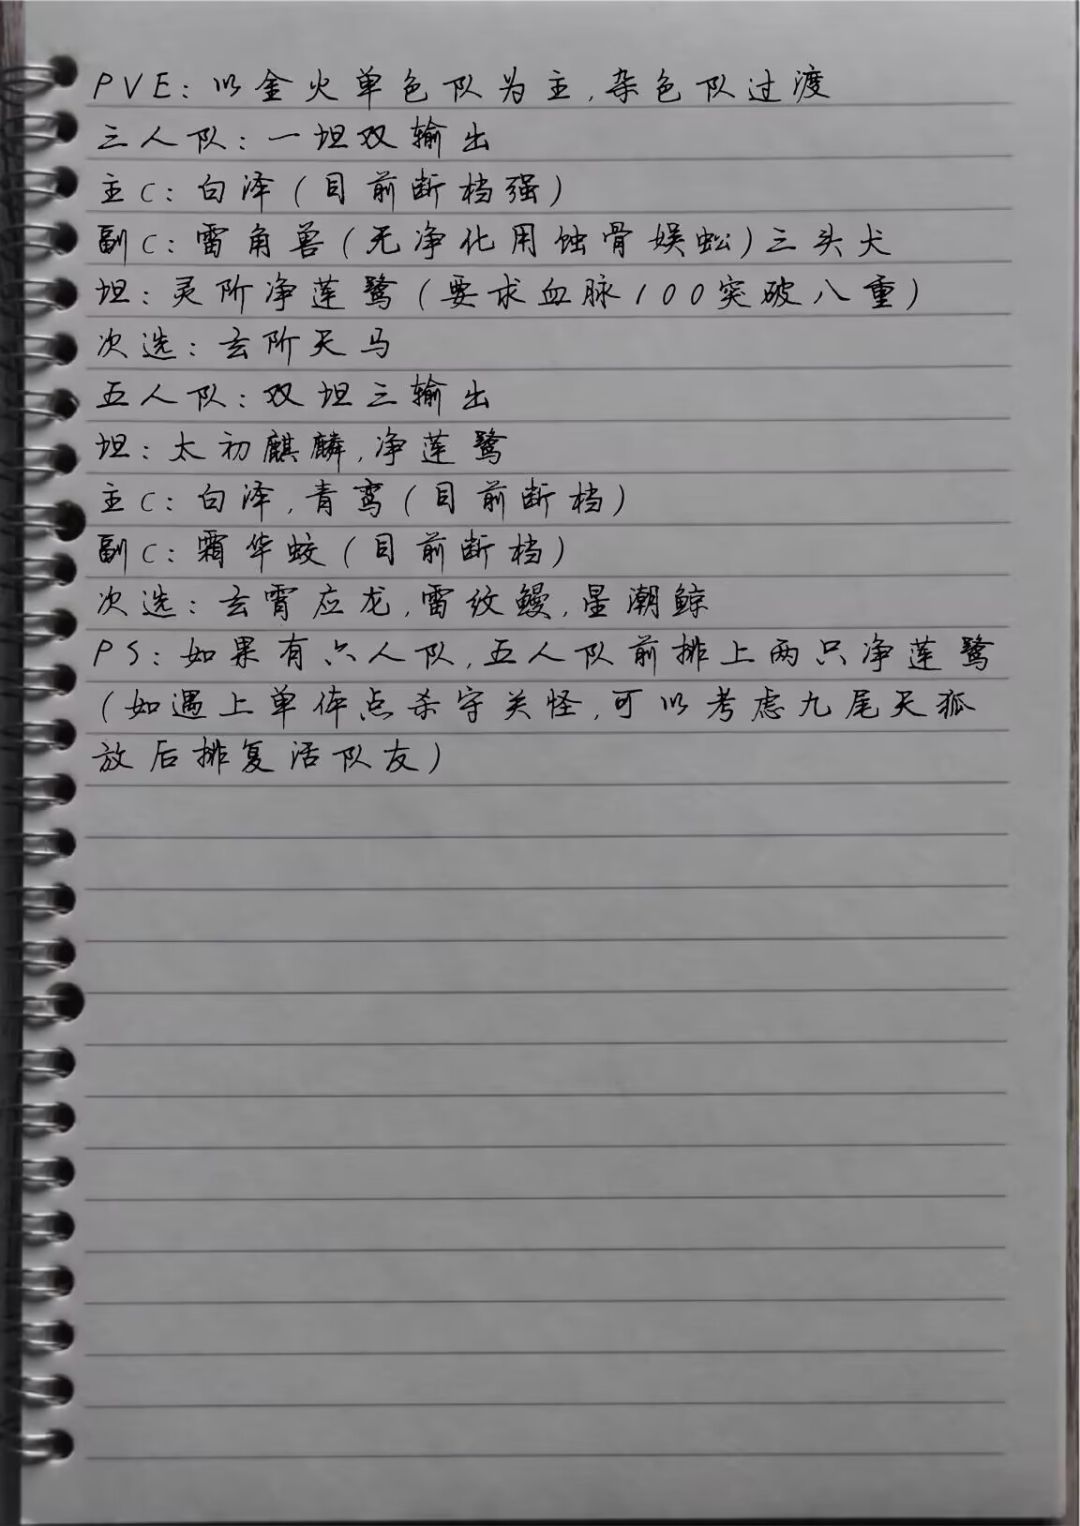 PVE：以金火单色队为主，杂色队过渡
三人队：一坦双输出
主C：白泽（目前断档强）
副C：雷角兽（无净化用蚀骨蜈蚣）三头犬
坦：灵阶净莲鹭（要求血脉100突破八重）
次选：玄阶天马
五人队：双坦三输出
坦：太初麒麟，净莲鹭
主C：白泽，青鸾（目前断档）
副C：霜华蛟（目前断档）
次选：玄霄应龙，雷纹鳗，星潮鲸
PS：如果有六人队，五人队前排上两只净莲鹭
（如遇上单体点杀守关怪，可以考虑九尾天狐
放后排复活队友）